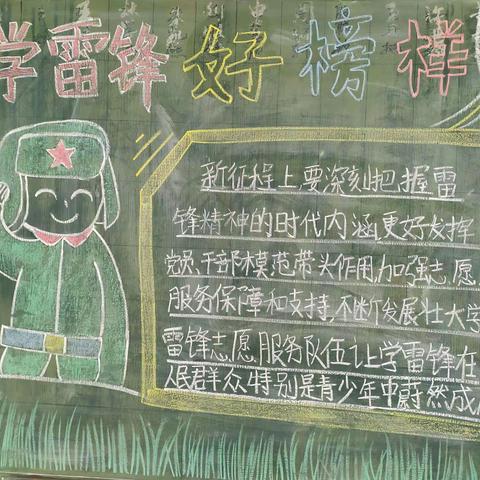 学雷锋好榜样
新征程上要深刻把握雷
锋精神的时代内涵更好发挥
党员、干部模范带头作用,加强志愿
服务保障和支持,不断发展壮大学
雷锋志愿服务队伍,让学雷锋在
人民群众,特别是青少年中蔚然成